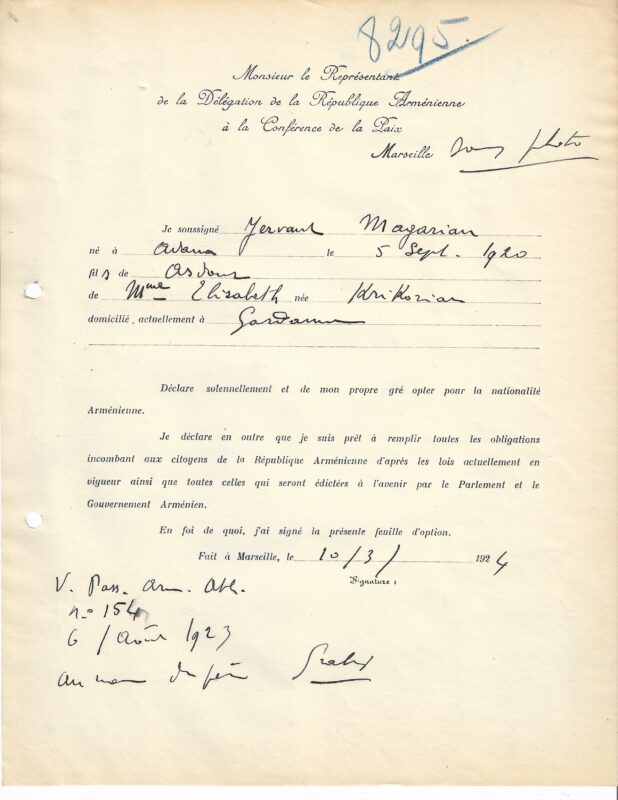 8295
Monsieur le Représentant
de la Délégation de la République Arménienne
à la Conférence de la Paix
Marseille sans photo
Je soussigné Jervant Magarian
né à Adana le 5 Sept. 1920
fils de Asdour
de Mme Elizabeth née Krikorian
domicilié, actuellement à Gardanne
Déclare solennellement et de mon propre gré opter pour la nationalité
Arménienne.
Je déclare en outre que je suis prêt à remplir toutes les obligations
incombant aux citoyens de la République Arménienne d'après les lois actuellement en
vigueur ainsi que toutes celles qui seront édictées à l'avenir par le Parlement et le
Gouvernement Arménien.
En foi de quoi, j'ai signé la présente feuille d'option.
Fait à Marseille, le 10/3/ 1924
Signature :
V. Pass. Arm. Ath.
no 154
6 / Août 1923
au nom du père